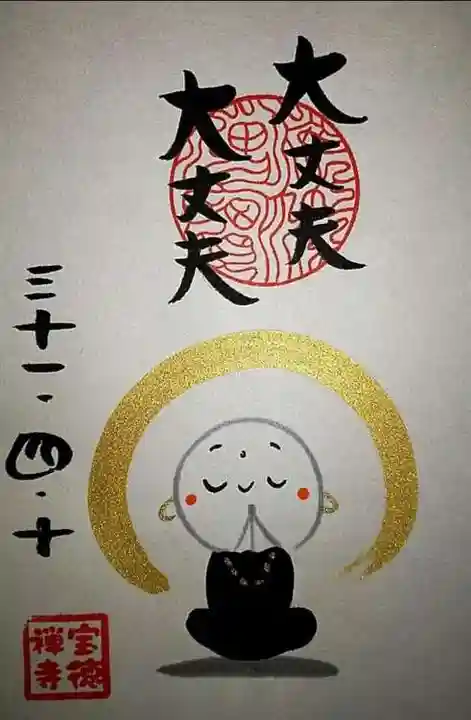 大丈夫
大丈夫
三十一・四・十
宝徳
禅寺